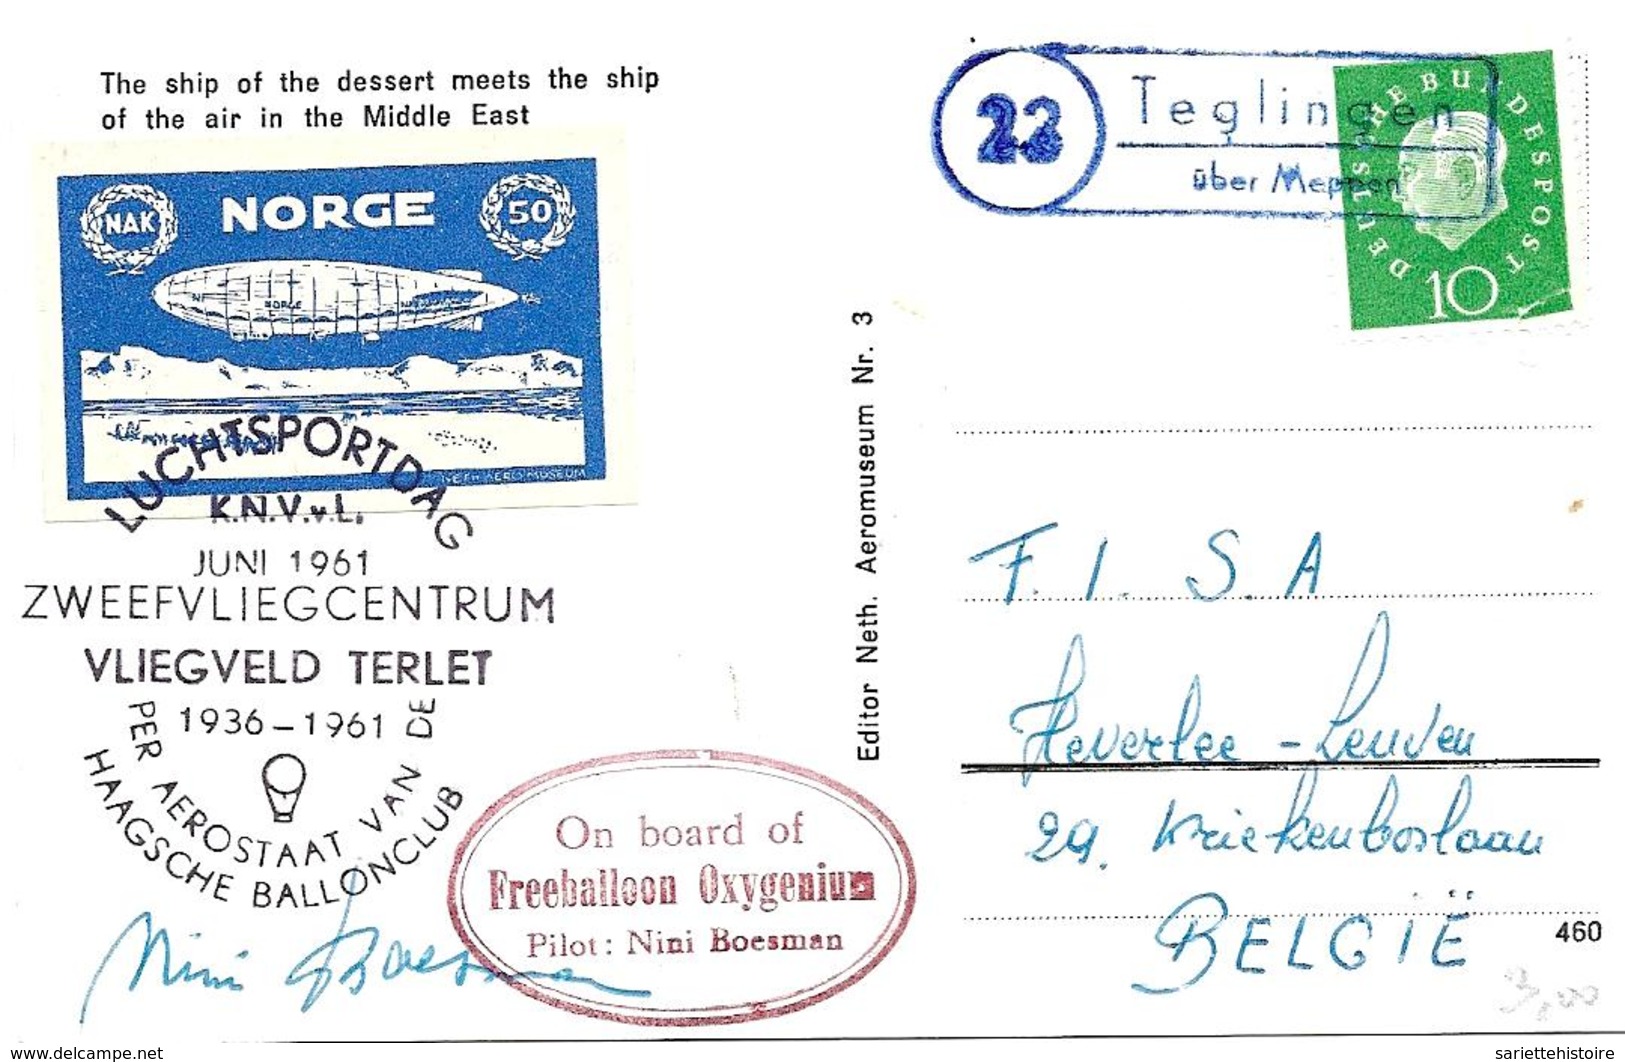 The ship of the dessert meets the ship
of the air in the Middle East
NAK
NORGE
50
NORGE
NETH. AERO MUSEUM
LUCHTSPORTDAG
K.N.V.v.L.
JUNI 1961
ZWEEFVLIEGCENTRUM
VLIEGVELD TERLET
1936-1961
PER AEROSTAAT VAN DE
HAAGSCHE BALLONCLUB
Nini Boesman
On board of
Freeballoon Oxygenium
Pilot: Nini Boesman
Editor Neth. Aeromuseum Nr. 3
23
Teglingen
über Meppen
DEUTSCHE BUNDESPOST
10
F. I. S. A
Heverlee - Leuven
29. Kriekenboslaan
BELGIË
460
3,00
delcampe.net
sariettehistoire